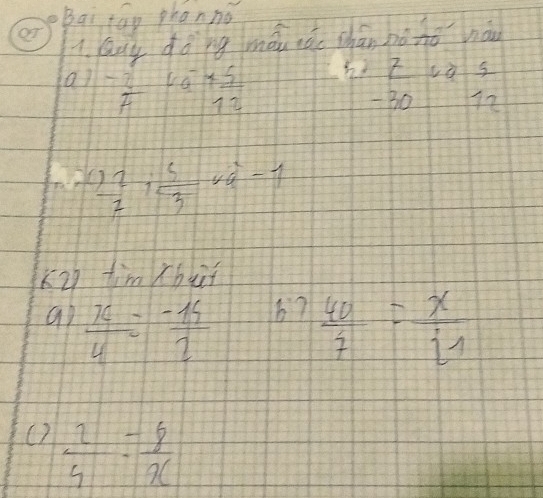 Bài tập phân số
1. Quy đồng mẫu các phân số sau
a) -2/7 và +5/12 b) 7/-30 và 5/12
c) 2/7 ; 5/3 và -1
2) tìm x biết
a) x/4 = -15/2 b) 40/7 = x/21
c) 2/5 = 8/x